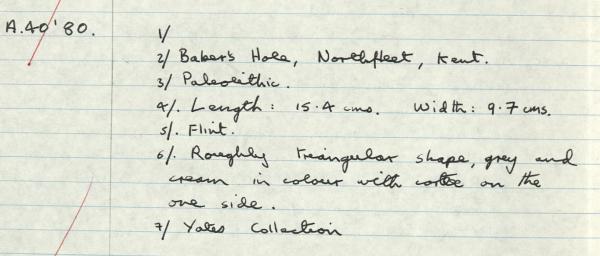 A.40'80.
1/
2/ Baker's Hole, Northfleet, Kent.
3/ Paleolithic.
4/. Length: 15.4 cms. Width: 9.7 cms.
5/. Flint.
6/. Roughly triangular shape, grey and
cream in colour with cortex on the
one side.
7/ Yates Collection